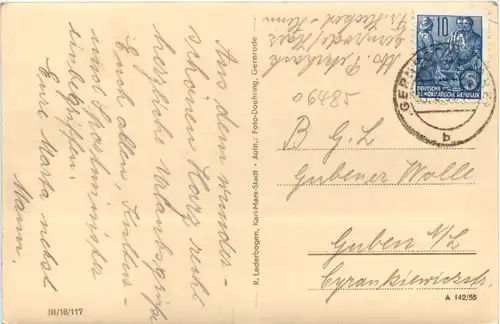 Aus dem wunder-
schönen Harz recht
herzliche Urlaubsgrüße
Euch allen, Kultur-
und Sportminister
einbegriffen.
Eure Marta nebst
Mann.
III/18/117
R. Lederbogen, Karl-Marx-Stadt · Aufn.: Foto-Doehring, Gernrode
Gernrode/Harz
58490
10
DEUTSCHE
DEMOKRATISCHE REPUBLIK
b
B G L
Gubener Wolle
Guben N/L
Cyrankiewiczstr.
A 142/55